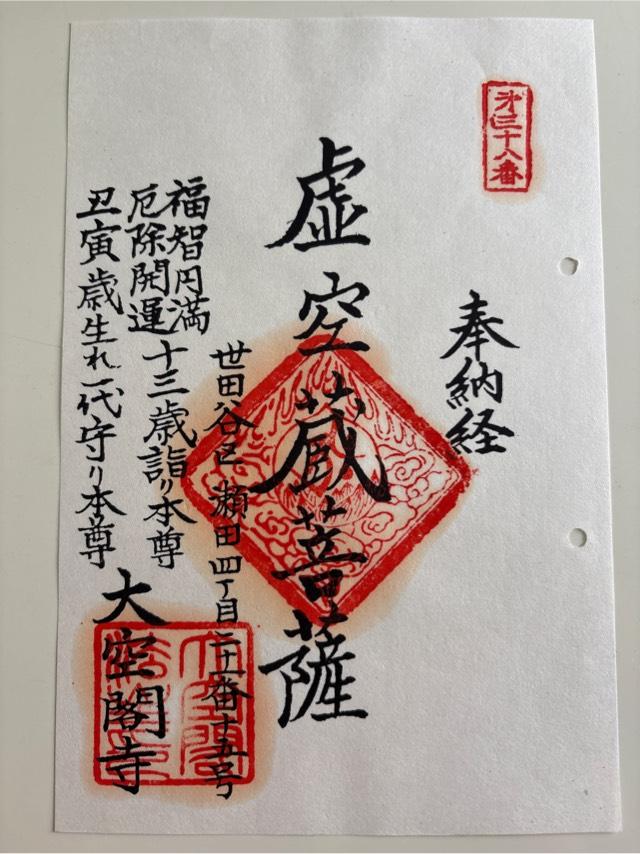 第三十八番
奉納経
虚空蔵菩薩
世田谷区瀬田四丁目二十一番十五号
福智円満
厄除開運
十三歳詣り本尊
丑寅歳生れ一代守り本尊
大空閣寺